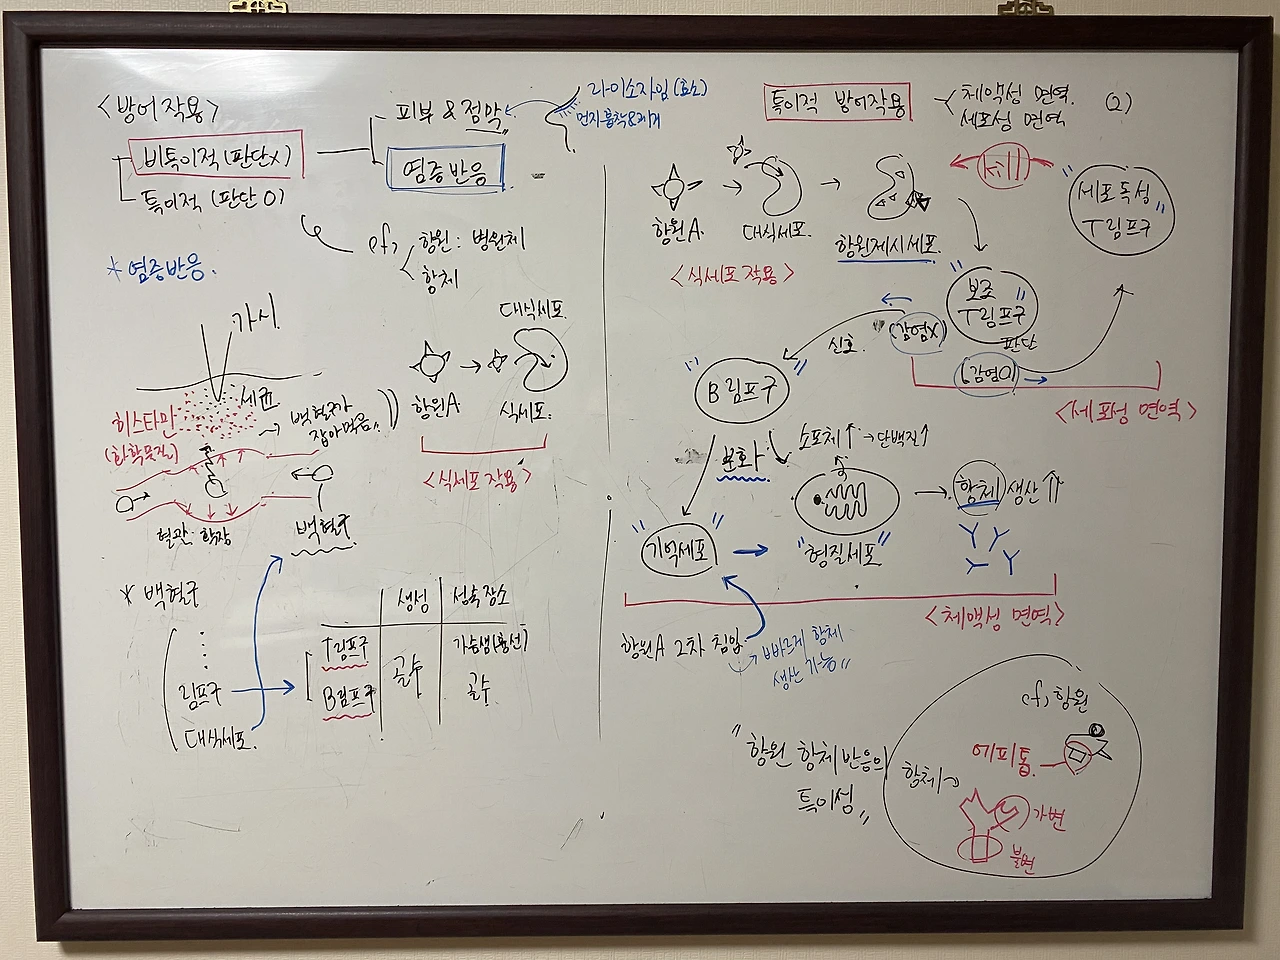 <방어작용>
비특이적(판단X)
특이적 (판단O)
피부 & 점막
염증반응
라이소자임(효소)
먼지흡착&제거
cf, 항원 : 병원체
항체
* 염증반응.
가시
세균
히스타민
(화학물질)
백혈구가
잡아먹음,,
혈관 : 확장
백혈구
대식세포.
항원A.
식세포.
<식세포 작용>
* 백혈구
림프구
대식세포.
생성
성숙장소
T림프구
B림프구
골수
가슴샘(흉선)
골수
특이적 방어작용
체액성 면역.
세포성 면역
(2)
항원A.
대식세포.
항원제시세포.
<식세포 작용>
kill
"세포독성
T림프구"
"보조
T림프구"
판단
(감염X)
(감염O)
신호.
<세포성 면역>
"B 림프구"
분화
소포체↑ → 단백질↑
"기억세포"
"형질세포"
항체 생산⇈
<체액성 면역>
항원A 2차 침입
→ 빠르게 항체
생산 가능,,
"항원 항체 반응의
특이성,,
cf, 항원
에피톱.
항체
가변
불변